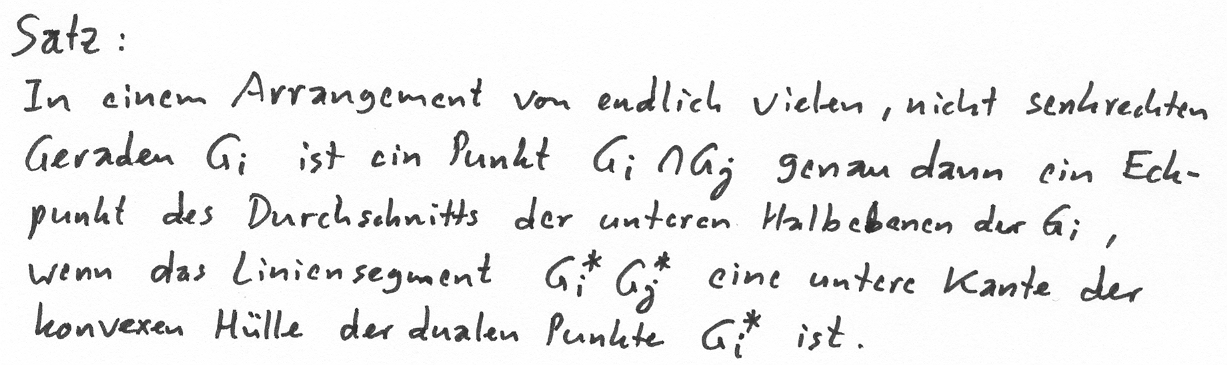 Satz:
In einem Arrangement von endlich vielen, nicht senkrechten
Geraden Gᵢ ist ein Punkt Gᵢ ∩ Gⱼ genau dann ein Eck-
punkt des Durchschnitts der unteren Halbebenen der Gᵢ,
wenn das Liniensegment Gᵢ* Gⱼ* eine untere Kante der
konvexen Hülle der dualen Punkte Gᵢ* ist.